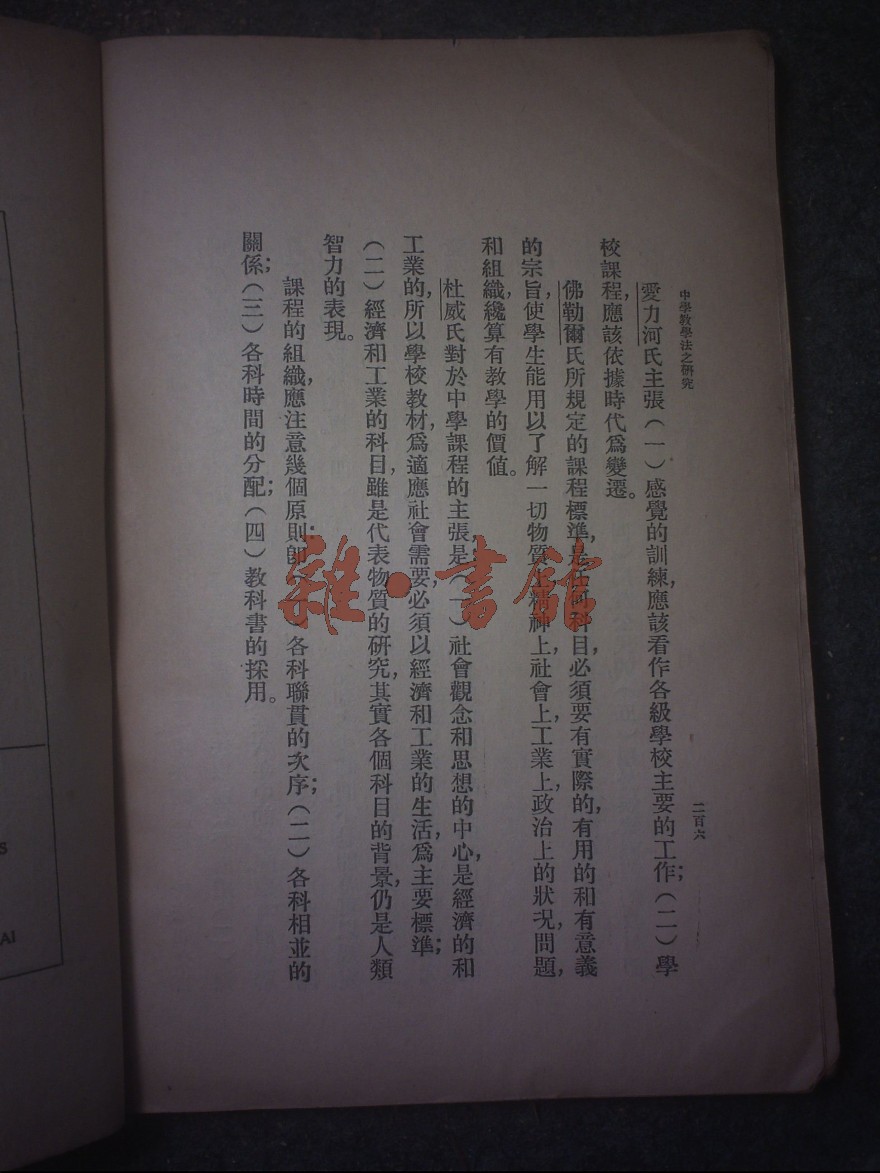 中學教學法之研究
二百六
愛力河氏主張(一)感覺的訓練,應該看作各級學校主要的工作;(二)學
校課程,應該依據時代爲變遷。
佛勒爾氏所規定的課程標準,是任何科目,必須要有實際的,有用的和有意義
的宗旨,使學生能用以了解一切物質上,精神上,社會上,工業上,政治上的狀況,問題,
和組織,纔算有教學的價值。
杜威氏對於中學課程的主張,是(一)社會觀念和思想的中心,是經濟的和
工業的,所以學校教材,爲適應社會需要,必須以經濟和工業的生活,爲主要標準;
(二)經濟和工業的科目,雖是代表物質的研究,其實各個科目的背景,仍是人類
智力的表現。
課程的組織,應注意幾個原則;即(一)各科聯貫的次序;(二)各科相並的
關係;(三)各科時間的分配;(四)教科書的採用。
雜·書館
S
AI